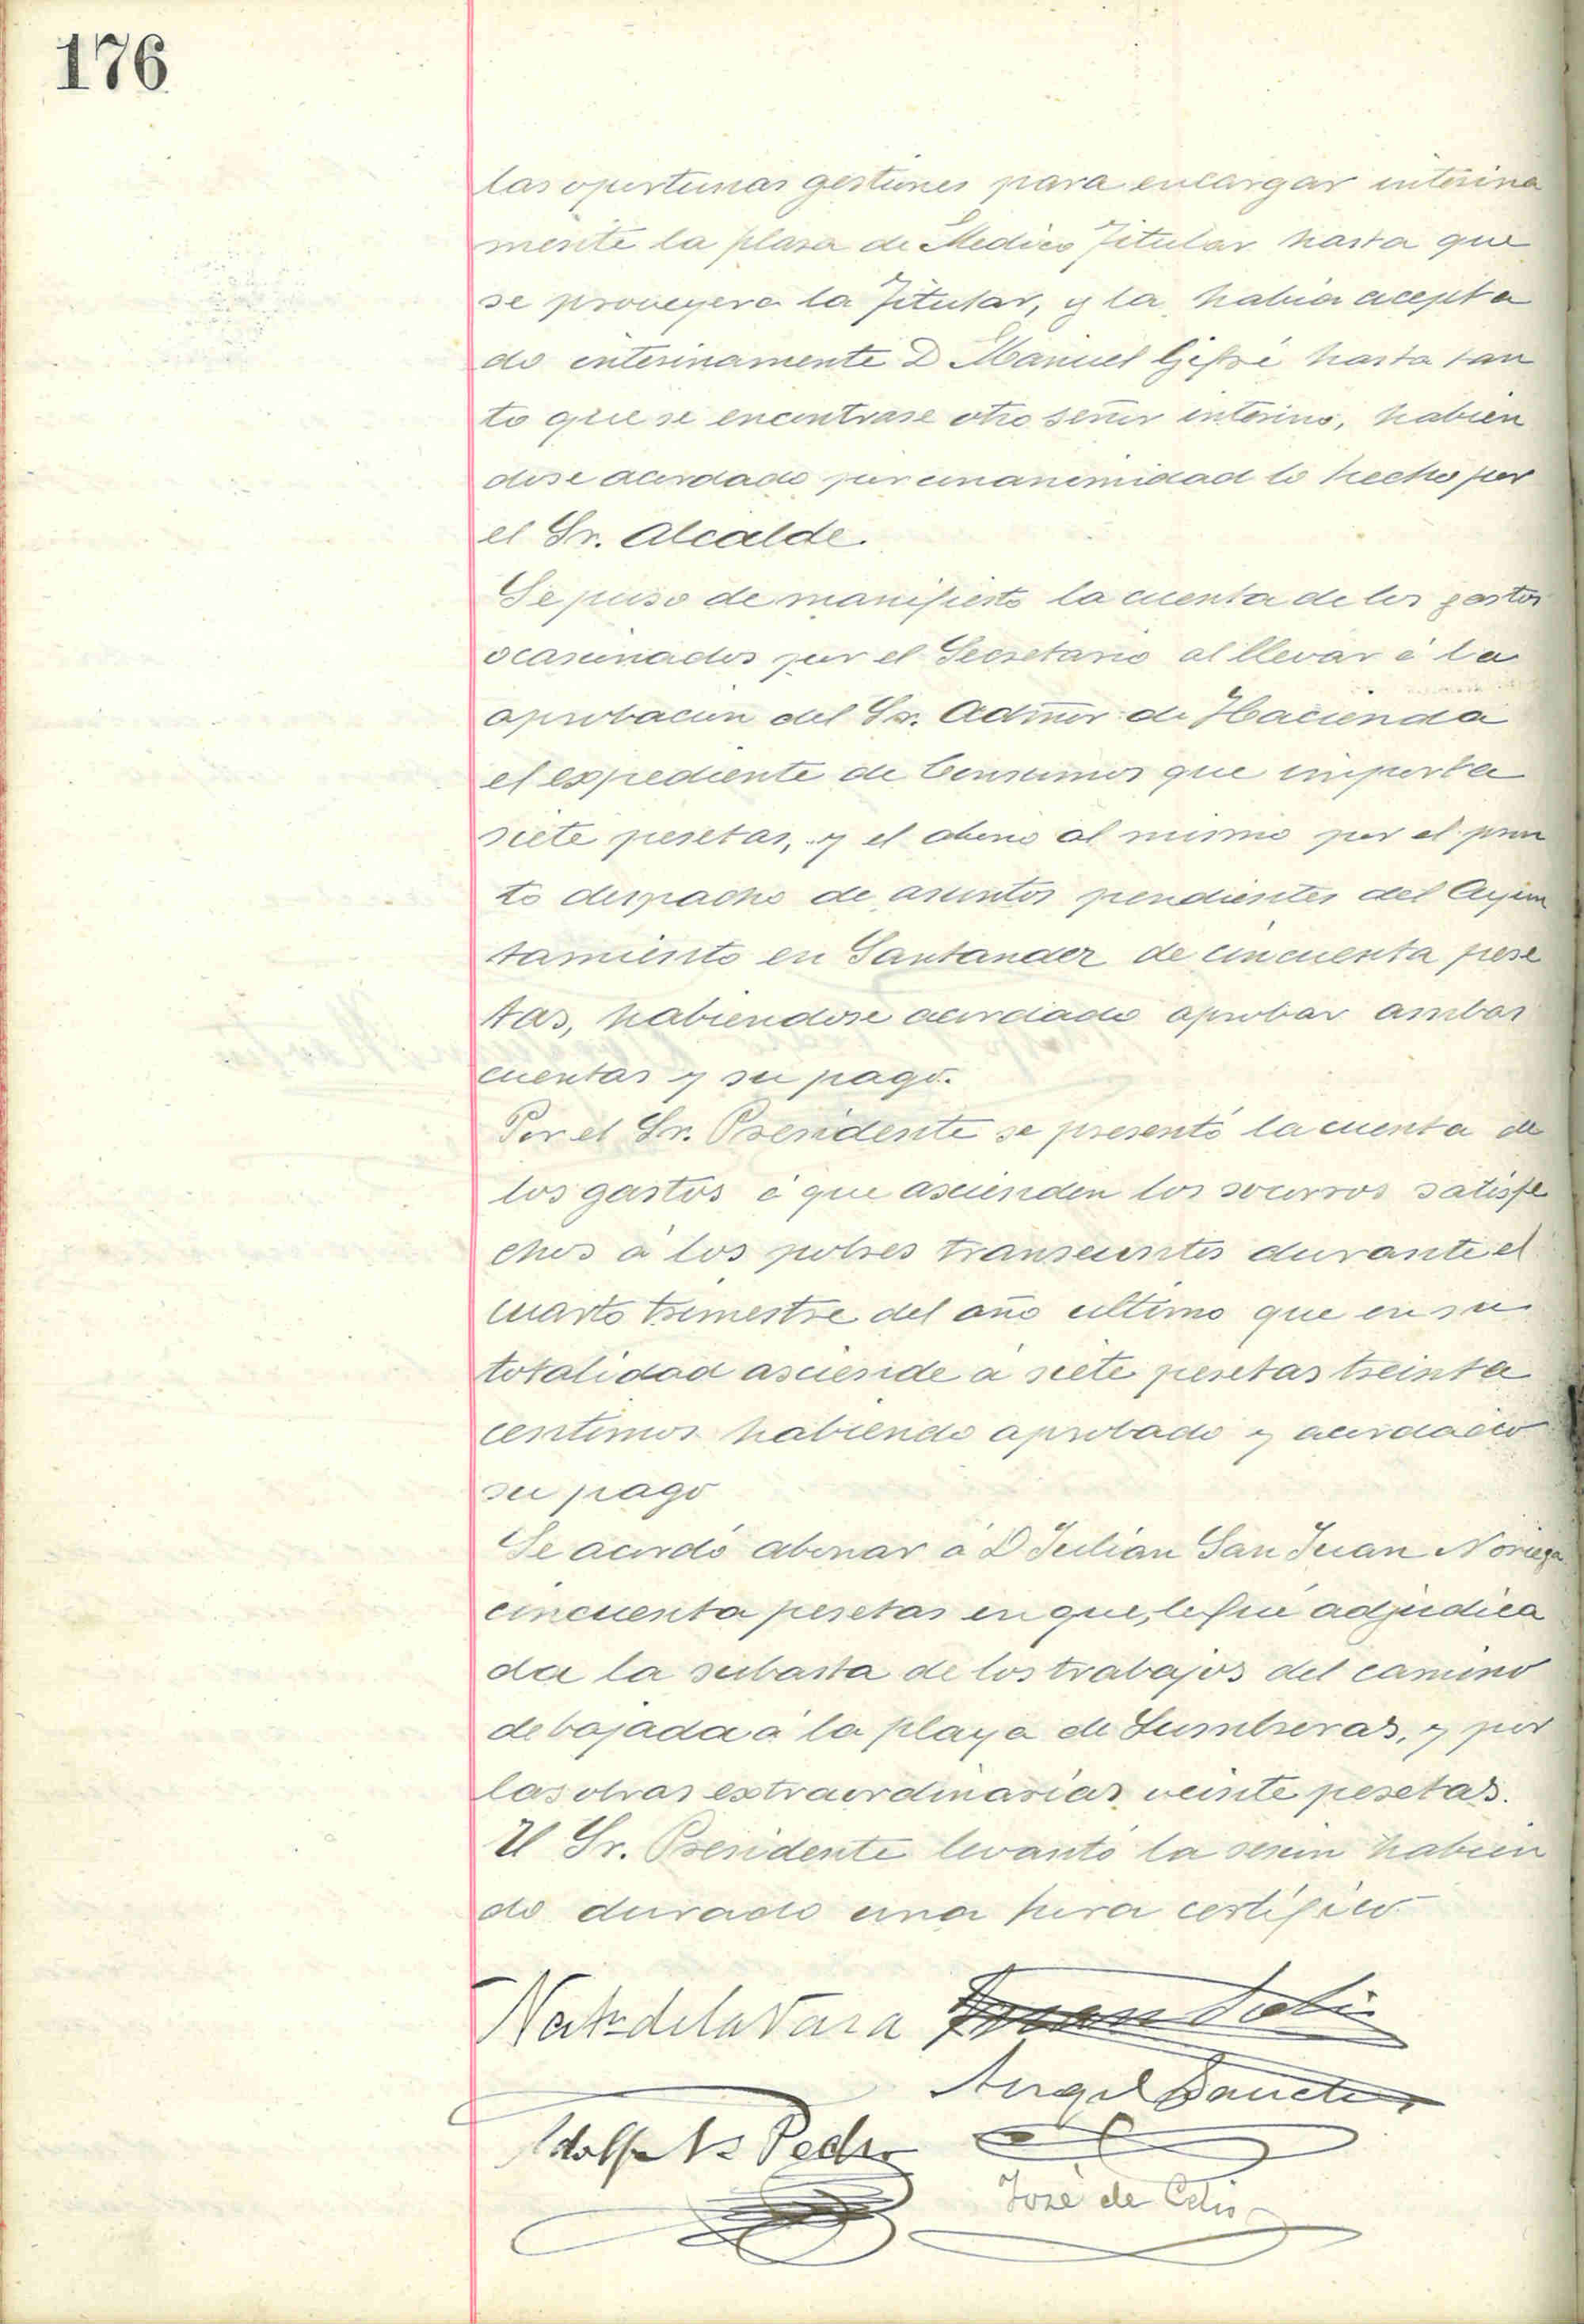 176
las oportunas gestiones para encargar interina
mente la plasa de Medico Titular hasta que
se proveyera la Titular, y la habia acepta
do interinamente D Manuel Gefré hasta tan
to que se encontrase otro señor interino, habien
dose acordado por unanimidad lo hecho por
el Sr. Alcalde.
Se puso de manifiesto la cuenta de los gastos
ocasionados por el Secretario al llevar á la
aprobacion del Sr. Admor de Hacienda
el expediente de Consumos que importa
siete pesetas, y el abono al mismo por el pron
to despacho de asuntos pendientes del Ayun
tamiento en Santander de cincuenta pese
tas, habiendose acordado aprobar ambas
cuentas y su pago.
Por el Sr. Presidente se presentó la cuenta de
los gastos á que ascienden los socorros satisfe
chos á los pobres transeuntes durante el
cuarto trimestre del año ultimo que en su
totalidad asciende a siete pesetas treinta
centimos habiendo aprobado y acordado
su pago
Se acordó abonar á D Julian San Juan Noriega
cincuenta pesetas en que, le fué adjudica
da la subasta de los trabajos del camino
de bajada á la playa de Lumbreras, y por
las obras extraordinarias veinte pesetas.
El Sr. Presidente levantó la sesion habien
do durado una hora certifico
de la Vara
Angel Sanchez
Adolfo Pedro
José de Celis